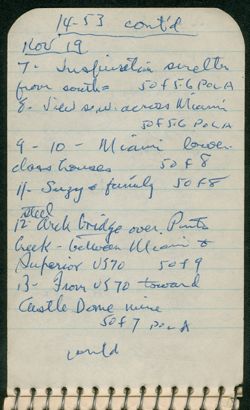 14-53 cont'd
Nov 19
7 - Inspiration smelter
from south - 50 f 5.6 Pol A
8 - View s.w. across Miami
50 f 5.6 Pol A
9 - 10 - Miami lower
class houses 50 f 8
11 - Suzy & family 50 f 8
steel
12 - Arch bridge over Pinto
Creek - between Miami &
Superior US 70 50 f 9
13 - From US 70 toward
Castle Dome mine
50 f 7 Pol A
cont'd